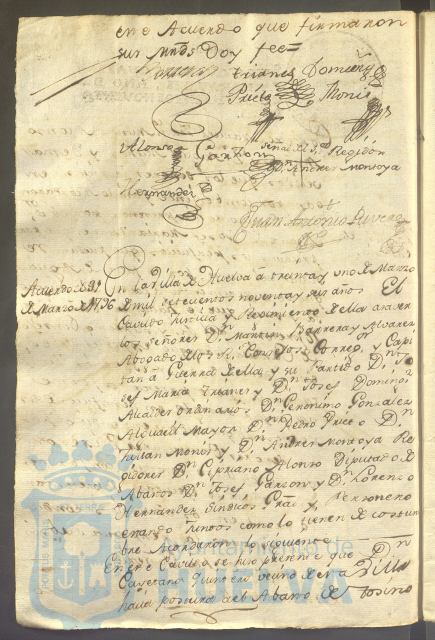 en e Acuerdo que firmaron
sus Mrds Doy fee =
Trianes Domingz
Prieto Moni
Alonso Garzon Señal del Sr Regidor
Dn Andres Montoya
Hernandez
Juan Antonio
Acuerdo de 31
de Marzo de 1796
En la Villa de Huelva à treinta y uno de Marzo
de mil setecientos noventa y seis años El
Cavildo Justicia y Regimiento de ella a saver
los señores Dn Martin Barrena y Alvarez
Abogado de los Rs Consejos Corregor y Capi
tan à Guerra de ella y su Partido Dn Jo
sef Maria Trianes y Dn Josef Domingz
Alcaldes ordinarios Dn Geronimo Gonzalez
Alguacil Mayor Dn Pedro Prieto Dn
Andres Montoya Re
gidores Dn Cipriano Alonso Diputado de
Abastos Dn Josef Garzon y Dn Lorenzo
Hernandez Sindico Gral y Personero
estando juntos como lo tienen de costum
bre Acordaron lo siguiente
En este Cavildo se hizo presente que Dn
Cayetano vecino de esta Villa
havia postura al Abasto de tosino
Ayuntamiento de